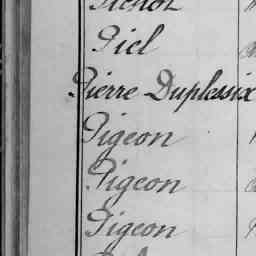 Piel
Pierre Duplessix
Pigeon
Pigeon
Pigeon